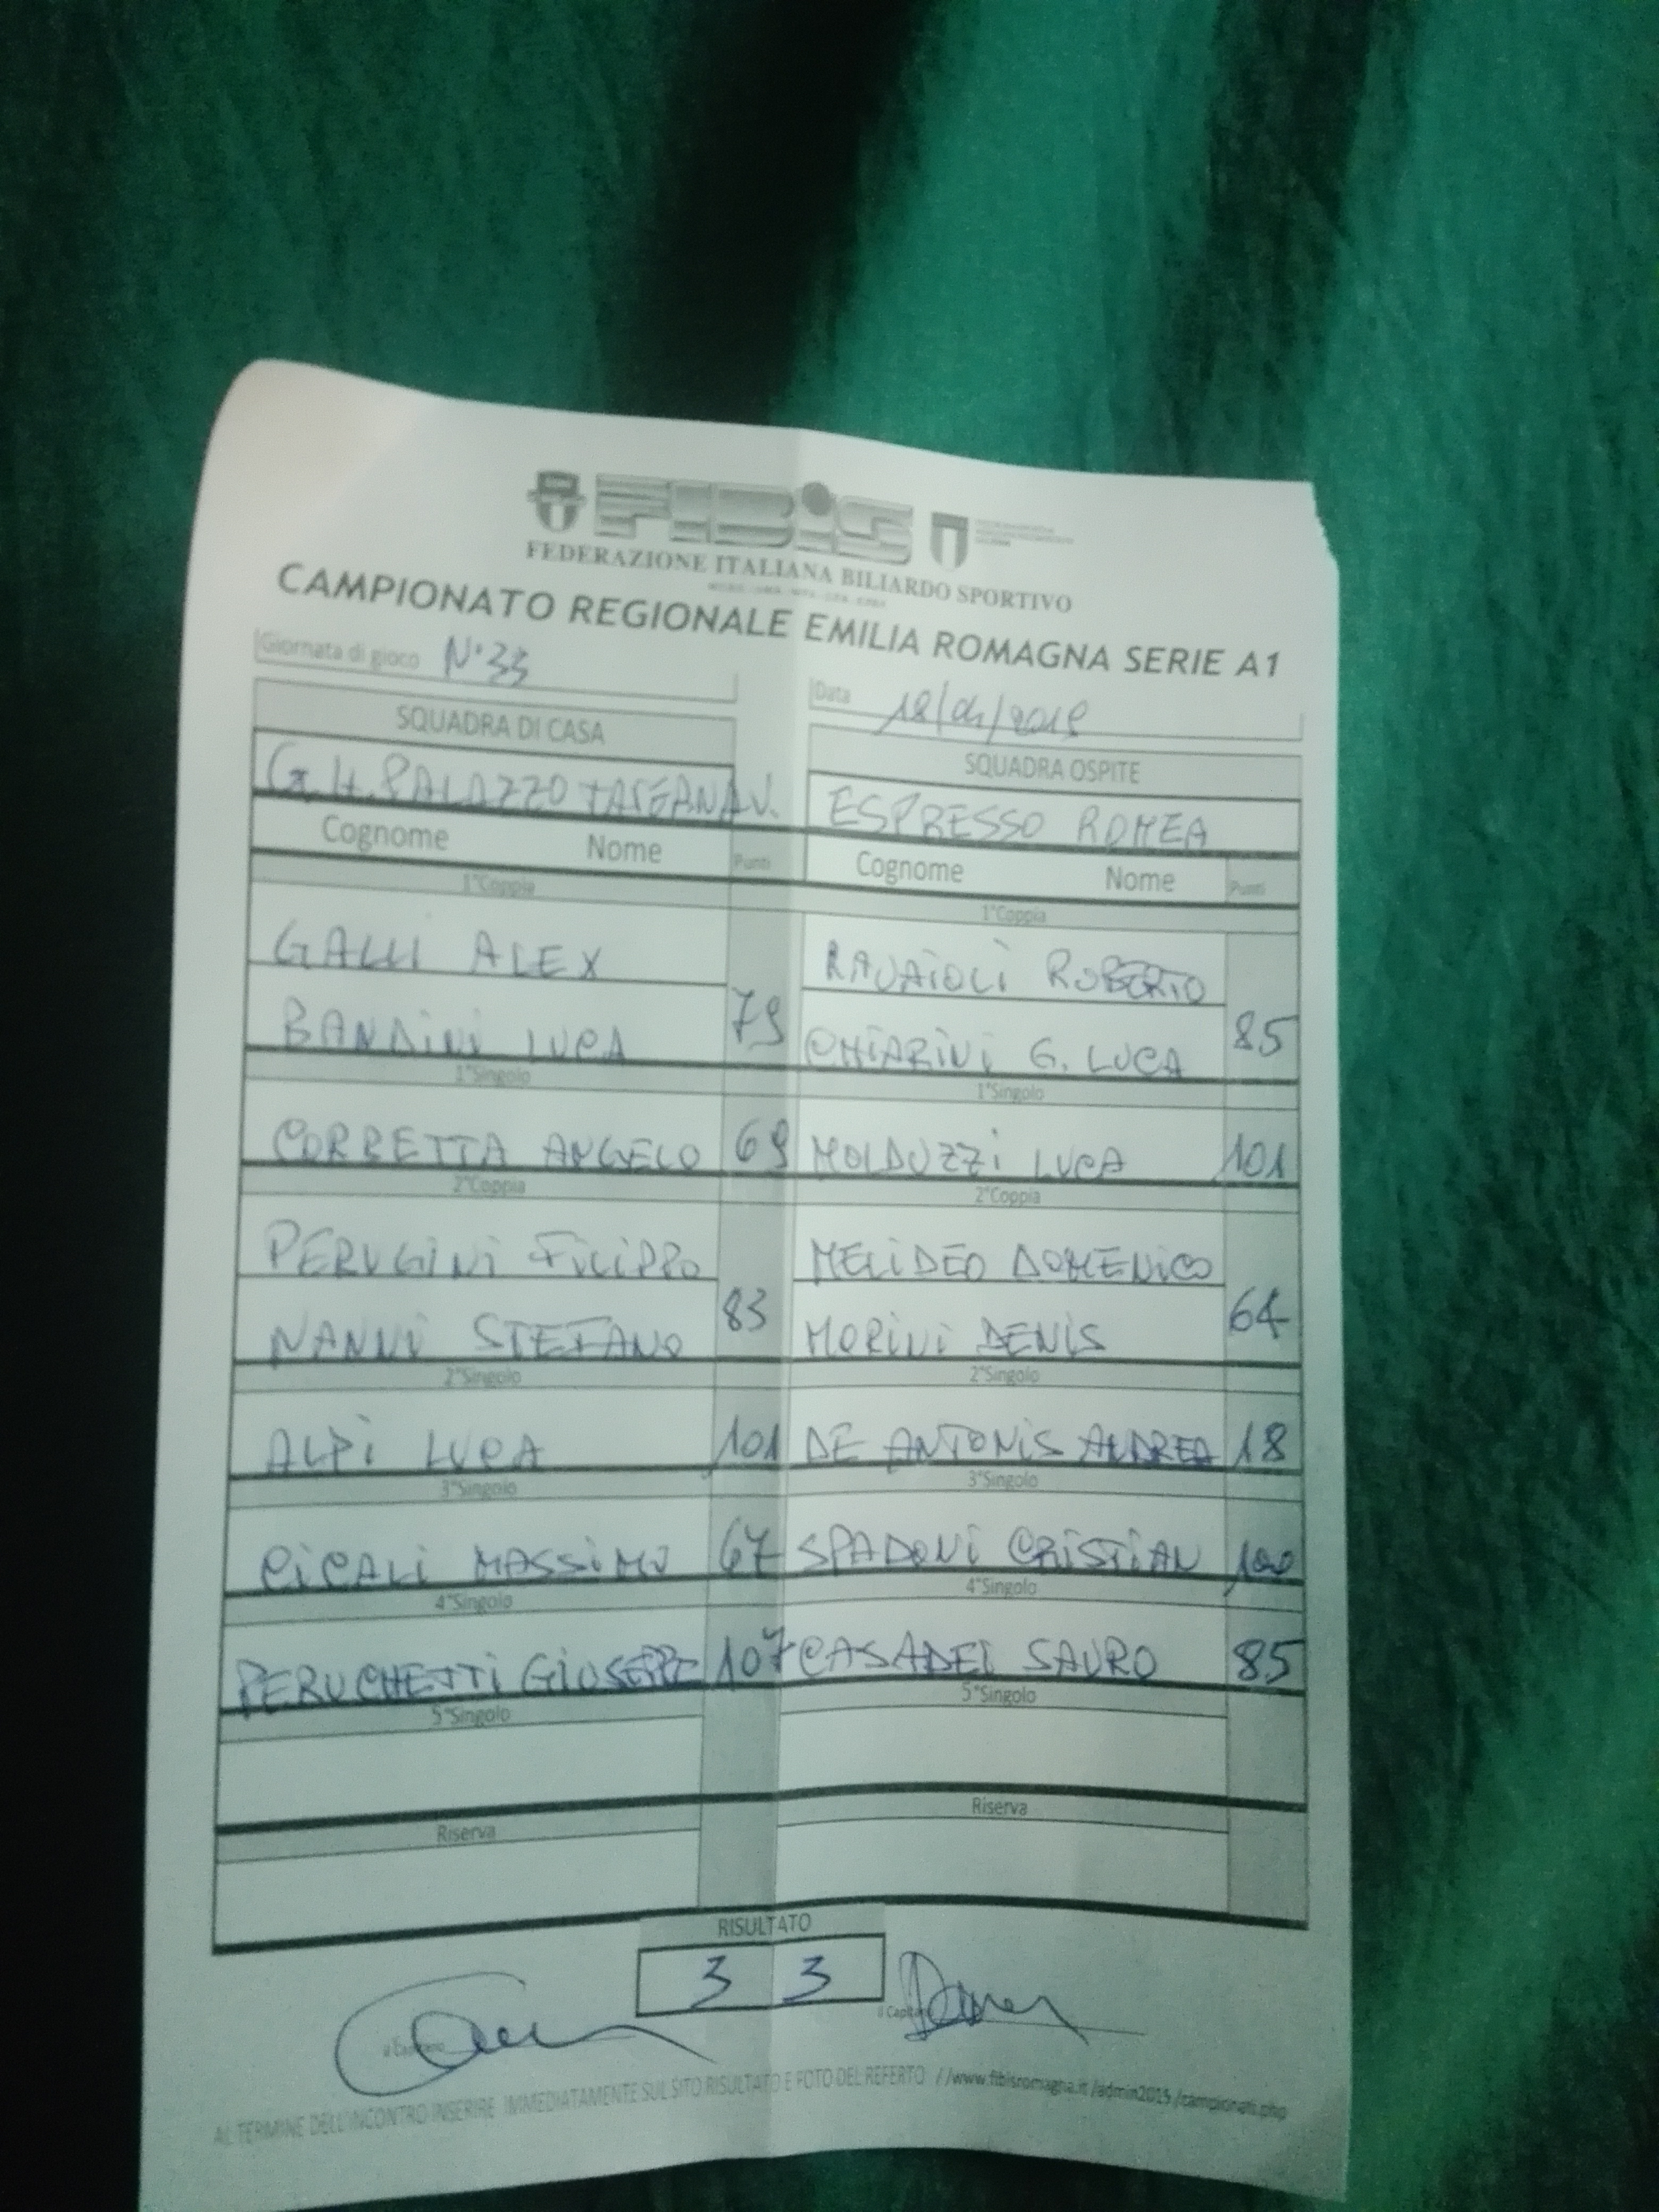 FIBiS
FEDERAZIONE ITALIANA BILIARDO SPORTIVO
CAMPIONATO REGIONALE EMILIA ROMAGNA SERIE A1
Giornata di gioco N°33
Data
SQUADRA DI CASA
SQUADRA OSPITE
G.H. PALAZZO TAVERNA V.
ESPRESSO ROMEA
Cognome Nome Punti
Cognome Nome Punti
1°Coppia 1°Coppia
GALLI ALEX RAVAIOLI ROBERTO
79 85
BANDINI LUCA CHIARINI G. LUCA
1°Singolo 1°Singolo
CORBETTA ANGELO 69 MOLDUZZI LUCA 101
2°Coppia 2°Coppia
PERUGINI FILIPPO MELIDEO DOMENICO
83 64
NANNI STEFANO MORINI DENIS
2°Singolo 2°Singolo
ALPI LUCA 101 DE ANTONIS ANDREA 18
3°Singolo 3°Singolo
CICALI MASSIMO 67 SPADONI CRISTIAN 100
4°Singolo 4°Singolo
PERUCHETTI GIUSEPPE 107 CASADEI SAURO 85
5°Singolo 5°Singolo
Riserva Riserva
RISULTATO
3 3
il Capitano il Capitano
AL TERMINE DELL'INCONTRO INSERIRE IMMEDIATAMENTE SUL SITO RISULTATO E FOTO DEL REFERTO //www.fibisromagna.it/admin2015/campionati.php